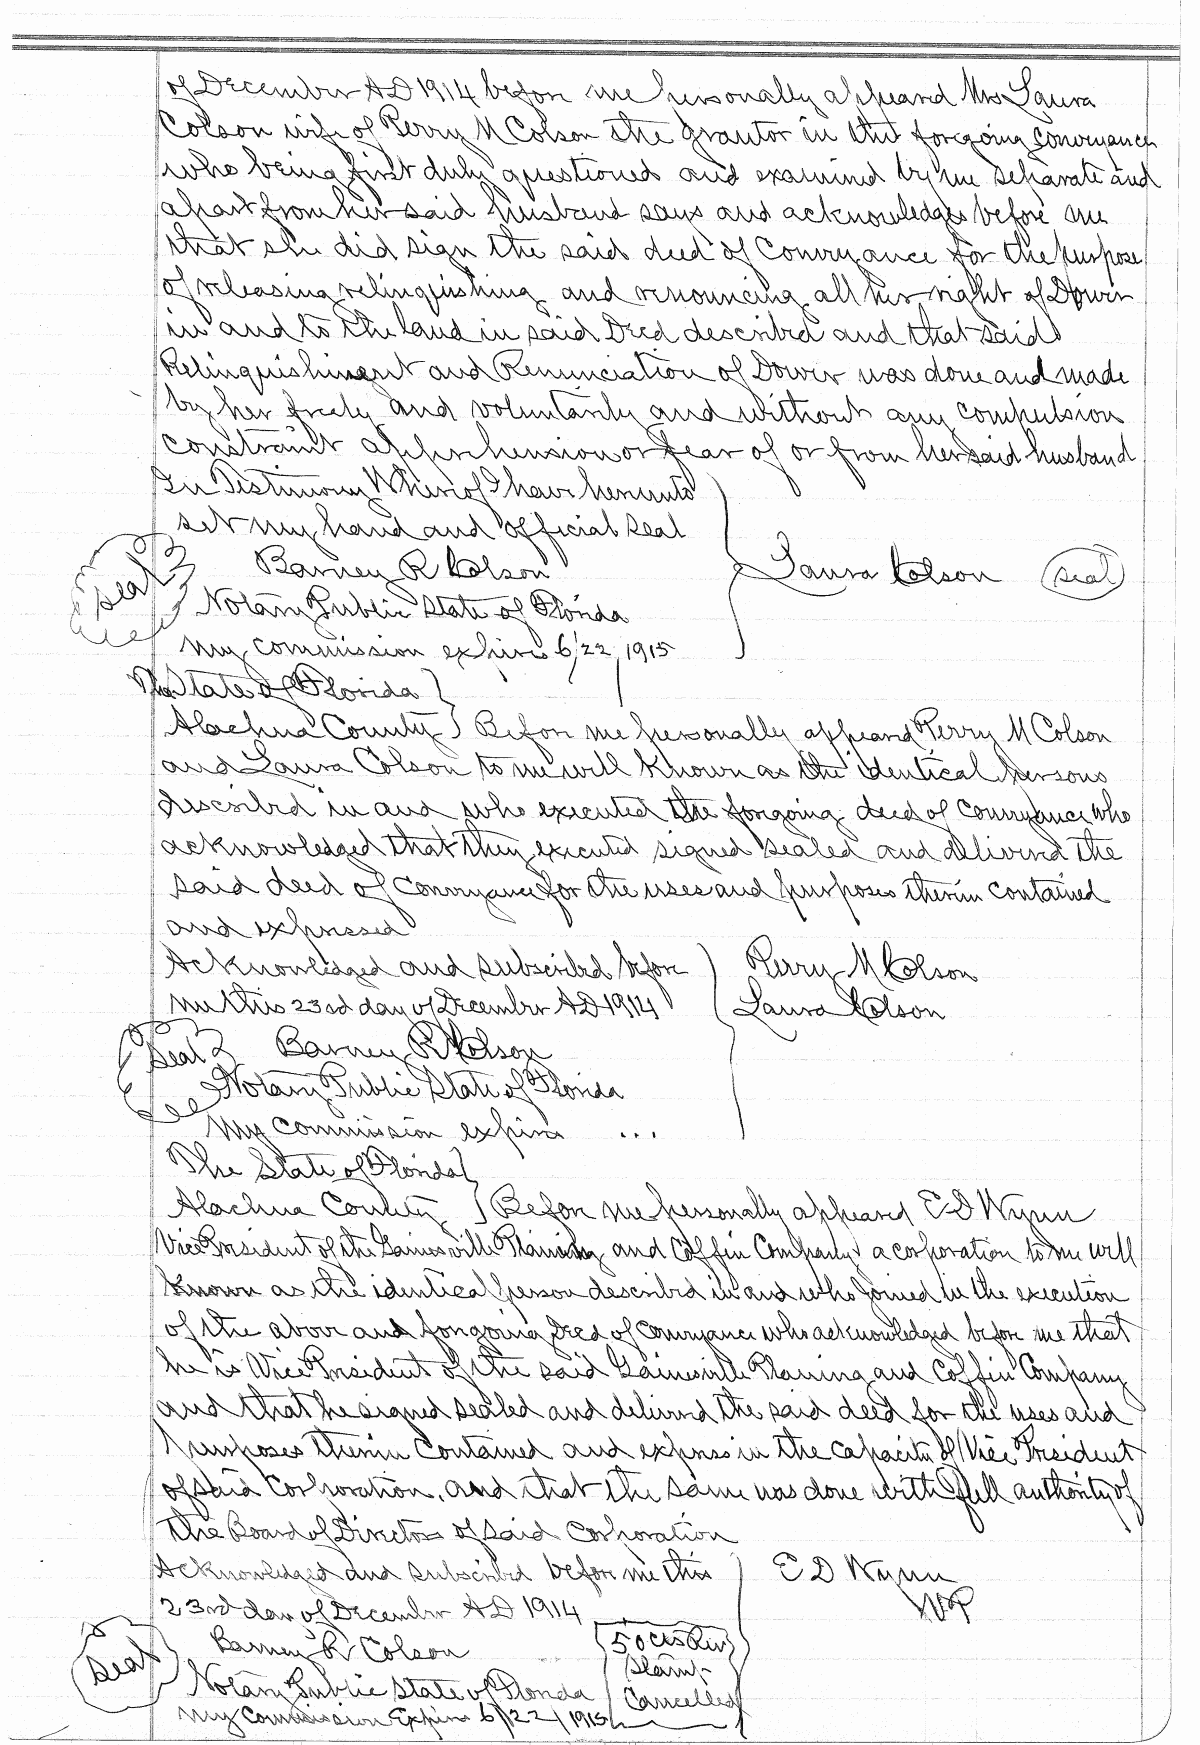 of December AD 1914 before me personally appeared Mrs Laura
Colson wife of Perry M Colson the grantor in the foregoing conveyance
who being first duly questioned and examined by me separate and
apart from her said husband says and acknowledges before me
that she did sign the said deed of Conveyance for the purpose
of releasing relinquishing and renouncing all her right of Dower
in and to the land in said Deed described and that said
Relinquishment and Renunciation of Dower was done and made
by her freely and voluntarily and without any compulsion
constraint apprehension or fear of or from her said husband
In Testimony Whereof I have hereunto
set my hand and official seal
Seal Barney R Colson Laura Colson Seal
Notary Public State of Florida
My commission expires 6/22/1915
The State of Florida
Alachua County Before me personally appeared Perry M Colson
and Laura Colson to me well known as the identical persons
described in and who executed the foregoing deed of conveyance who
acknowledged that they executed signed sealed and delivered the
said deed of conveyance for the uses and purposes therein contained
and expressed
Acknowledged and subscribed before Perry M Colson
me this 23rd day of December AD 1914 Laura Colson
Seal Barney R Colson
Notary Public State of Florida
My commission expires ...
The State of Florida
Alachua County Before me personally appeared E D Wynn
Vice President of the Gainesville Planing and Coffin Company a corporation to me well
known as the identical person described in and who joined in the execution
of the above and foregoing Deed of Conveyance who acknowledged before me that
he is Vice President of the said Gainesville Planing and Coffin Company
and that he signed sealed and delivered the said deed for the uses and
purposes therein contained and express in the capacity of Vice President
of said Corporation, and that the same was done with full authority of
the Board of Directors of said Corporation
Acknowledged and subscribed before me this E D Wynn
23rd day of December AD 1914 VP
Seal Barney R Colson 50 cts Rev
Stamp
Notary Public State of Florida Cancelled
My Commission Expires 6/22/1915